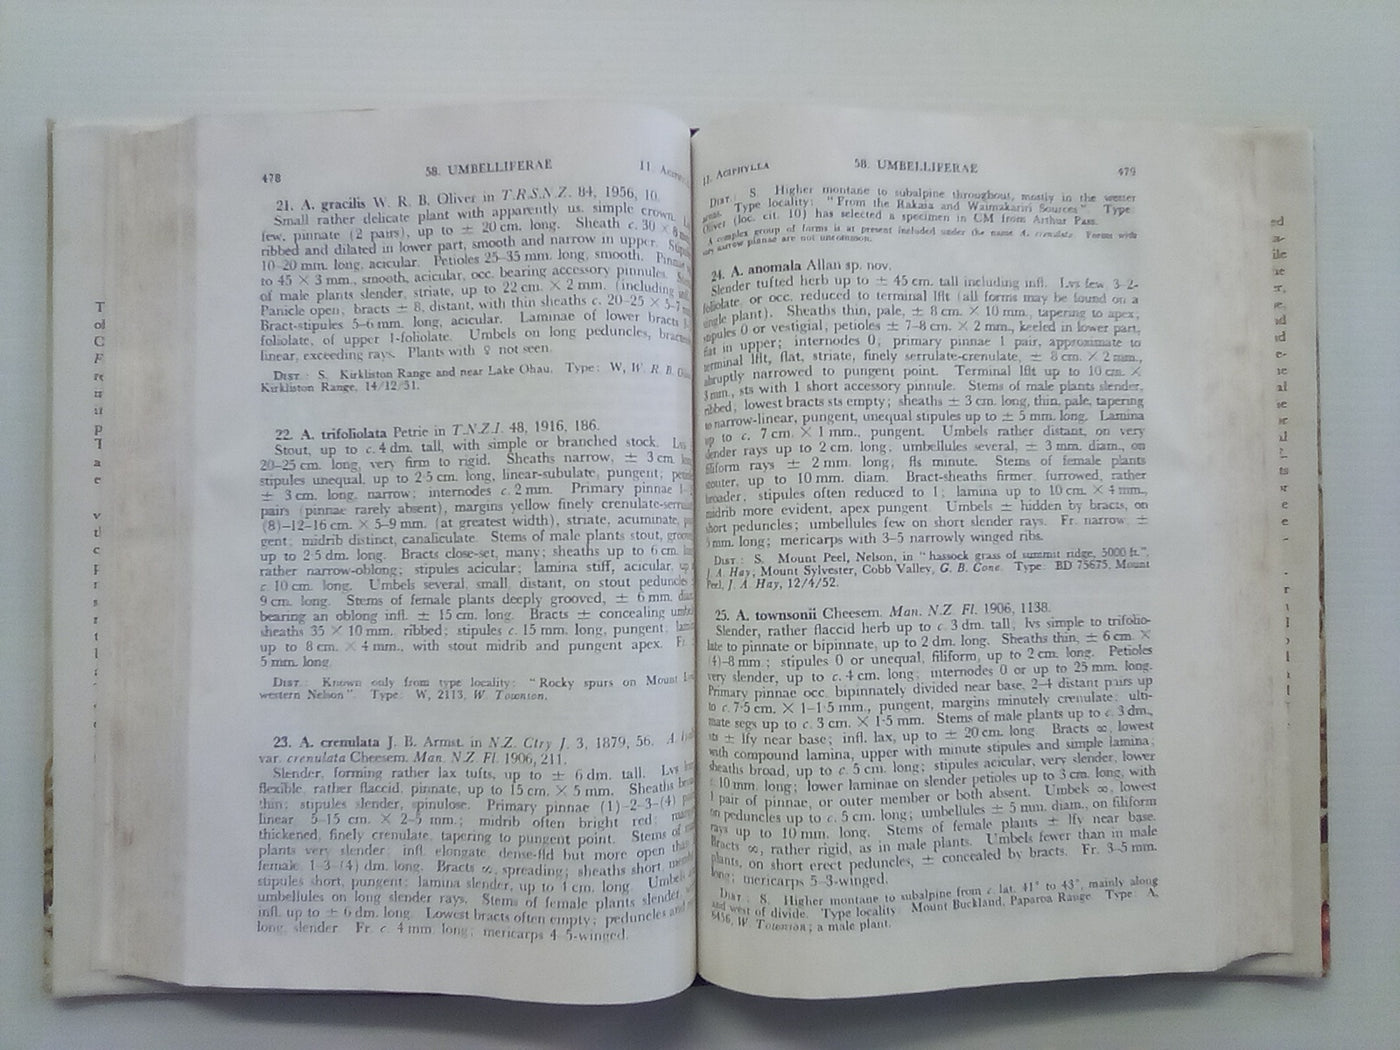 478
58. UMBELLIFERAE
11.
21. A. gracilis W. R. B. Oliver in T.R.S.N.Z. 84, 1956, 10.
Small rather delicate plant with apparently us. simple crown.
few, pinnate (2 pairs), up to ± 20 cm. long. Sheath c. 30 × 8
ribbed and dilated in lower part, smooth and narrow in upper.
10–20 mm. long, acicular. Petioles 25–35 mm. long, smooth.
to 45 × 3 mm., smooth, acicular, occ. bearing accessory pinnules.
of male plants slender, striate, up to 22 cm. × 2 mm. (including
Panicle open; bracts ± 8, distant, with thin sheaths c. 20–25 × 5–7
Bract-stipules 5–6 mm. long, acicular. Laminae of lower bracts
foliolate, of upper 1-foliolate. Umbels on long peduncles,
linear, exceeding rays. Plants with ♀ not seen.
DIST.: S. Kirkliston Range and near Lake Ohau. Type: W, W. R. B.
Kirkliston Range, 14/12/51.
22. A. trifoliolata Petrie in T.N.Z.I. 48, 1916, 186.
Stout, up to c. 4 dm. tall, with simple or branched stock. Lvs
20–25 cm. long, very firm to rigid. Sheaths narrow, ± 3 cm.
stipules unequal, up to 2·5 cm. long, linear-subulate, pungent;
± 3 cm. long, narrow; internodes c. 2 mm. Primary pinnae
pairs (pinnae rarely absent), margins yellow finely
(8)–12–16 cm. × 5–9 mm. (at greatest width), striate, acuminate,
gent; midrib distinct, canaliculate. Stems of male plants stout,
up to 2·5 dm. long. Bracts close-set, many; sheaths up to 6 cm.
rather narrow-oblong; stipules acicular; lamina stiff, acicular,
c. 10 cm. long. Umbels several, small, distant, on stout peduncles
9 cm. long. Stems of female plants deeply grooved, ± 6 mm.
bearing an oblong infl. ± 15 cm. long. Bracts ± concealing
sheaths 35 × 10 mm. ribbed; stipules c. 15 mm. long, pungent;
up to 8 cm. × 4 mm., with stout midrib and pungent apex. Fr.
5 mm. long.
DIST.: Known only from type locality: "Rocky spurs on Mount
western Nelson". Type: W, 2113, W. Townson.
23. A. crenulata J. B. Armst. in N.Z. Ctry J. 3, 1879, 56. A.
var. crenulata Cheesem. Man. N.Z. Fl. 1906, 211.
Slender, forming rather lax tufts, up to ± 6 dm. tall. Lvs
flexible, rather flaccid, pinnate, up to 15 cm. × 5 mm. Sheaths
thin; stipules slender, spinulose. Primary pinnae (1)–2–3–(4)
linear, 5–15 cm. × 2–5 mm.; midrib often bright red;
thickened, finely crenulate, tapering to pungent point. Stems of
plants very slender; infl. elongate, dense-fld but more open than
female, 1–3–(4) dm. long. Bracts ∞, spreading; sheaths short,
stipules short, pungent; lamina slender, up to 4 cm. long.
umbellules on long slender rays. Stems of female plants slender,
infl. up to ± 6 dm. long. Lowest bracts often empty; peduncles and
long, slender. Fr. c. 4 mm. long; mericarps 4–5-winged.
11. ACIPHYLLA
58. UMBELLIFERAE
479
DIST.: S. Higher montane to subalpine throughout, mostly in the wetter
areas. Type locality: "From the Rakaia and Waimakariri Sources". Type:
Oliver (loc. cit. 10) has selected a specimen in CM from Arthur Pass.
A complex group of forms is at present included under the name A. crenulata. Forms with
very narrow pinnae are not uncommon.
24. A. anomala Allan sp. nov.
Slender tufted herb up to ± 45 cm. tall including infl. Lvs few, 3–2-
foliolate, or occ. reduced to terminal lflt (all forms may be found on a
single plant). Sheaths thin, pale, ± 8 cm. × 10 mm., tapering to apex;
stipules 0 or vestigial; petioles ± 7–8 cm. × 2 mm., keeled in lower part,
flat in upper; internodes 0; primary pinnae 1 pair, approximate to
terminal lflt, flat, striate, finely serrulate-crenulate, ± 8 cm. × 2 mm.,
abruptly narrowed to pungent point. Terminal lflt up to 10 cm. ×
3 mm., sts with 1 short accessory pinnule. Stems of male plants slender,
ribbed, lowest bracts sts empty; sheaths ± 3 cm. long, thin, pale, tapering
to narrow-linear, pungent, unequal stipules up to ± 5 mm. long. Lamina
up to c. 7 cm. × 1 mm., pungent. Umbels rather distant, on very
slender rays up to 2 cm. long; umbellules several, ± 3 mm. diam., on
filiform rays ± 2 mm. long; fls minute. Stems of female plants
stouter, up to 10 mm. diam. Bract-sheaths firmer, furrowed, rather
broader; stipules often reduced to 1; lamina up to 10 cm. × 4 mm.,
midrib more evident, apex pungent. Umbels ± hidden by bracts, on
short peduncles; umbellules few on short slender rays. Fr. narrow, ±
5 mm. long; mericarps with 3–5 narrowly winged ribs.
DIST.: S. Mount Peel, Nelson, in "hassock grass of summit ridge, 5000 ft.",
J. A. Hay; Mount Sylvester, Cobb Valley, G. B. Cone. Type: BD 75675, Mount
Peel, J. A. Hay, 12/4/52.
25. A. townsonii Cheesem. Man. N.Z. Fl. 1906, 1138.
Slender, rather flaccid herb up to c. 3 dm. tall; lvs simple to trifolio-
late to pinnate or bipinnate, up to 2 dm. long. Sheaths thin, ± 6 cm. ×
(4)–8 mm.; stipules 0 or unequal, filiform, up to 2 cm. long. Petioles
very slender, up to c. 4 cm. long; internodes 0 or up to 25 mm. long.
Primary pinnae occ. bipinnately divided near base, 2–4 distant pairs up
to c. 7·5 cm. × 1–1·5 mm., pungent, margins minutely crenulate; ulti-
mate segs up to c. 3 cm. × 1·5 mm. Stems of male plants up to c. 3 dm.,
sts ± lfy near base; infl. lax, up to ± 20 cm. long. Bracts ∞, lowest
with compound lamina, upper with minute stipules and simple lamina;
sheaths broad, up to c. 5 cm. long; stipules acicular, very slender, lower
c. 10 mm. long; lower laminae on slender petioles up to 3 cm. long, with
1 pair of pinnae, or outer member or both absent. Umbels ∞, lowest
on peduncles up to c. 5 cm. long; umbellules ± 5 mm. diam., on filiform
rays up to 10 mm. long. Stems of female plants ± lfy near base.
Bracts ∞, rather rigid, as in male plants. Umbels fewer than in male
plants, on short erect peduncles, ± concealed by bracts. Fr. 3–5 mm.
long; mericarps 5–3-winged.
DIST.: S. Higher montane to subalpine from c. lat. 41° to 43°, mainly along
and west of divide. Type locality: Mount Buckland, Paparoa Range. Type: A,
6456, W. Townson; a male plant.